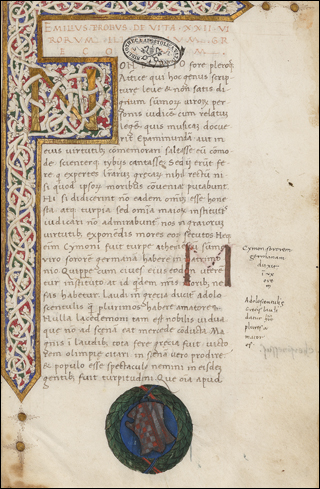 EMILIUS PROBUS DE VITA XXII VI
RORUM GR
E C O
fore pleroſq
Attice qui hoc genus scrip
ture leue & non satis di
gnum sumor uiror per
sonis iudicēt cum relatū
legēt quis musicā docue
rit Epaminundā aut in
eius uirtutibꝰ comemorari saltasse eū cōmo
de scienterq tybijs cantasse Sed erūt fe
re q expertes lrarū grecar nihil rectū ni
si quod ipsor moribus cōueniat putabunt
Hi si didicerint nō eadem omibꝰ esse hone
sta atq turpia sed omia maior institutis
iudicari nō admirabunt nos
uirtutibꝰ exponēdis mores eos secutos Neq
enim Cymoni fuit turpe sumo
uiro sororē germanā habere in matrimo
nio Quippe cum ciues eius eodē utere
tur instituto at id qdem nris moribꝰ ne
fas habetur Laudi in grecia ducit adole
scentulis q plurimos habere amatores
Nulla lacedemoni tam est nobilis uidua
que nō ad scenā eat mercede cōducta Ma
gnis i laudibꝰ tota fere grecia fuit uicto
rem olimpie citari in scena uero prodire
& populo esse spectaculo nemini in eisdē
gentibꝰ fuit turpitudini Que oia apud
Cymon sororem
germanam
duxit
Adolescentulis
laudi
plures